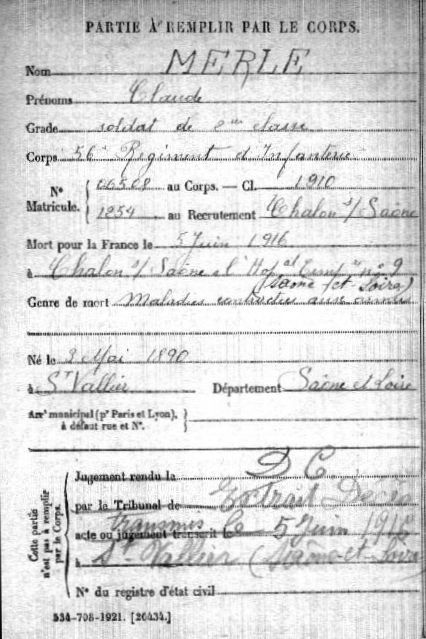 PARTIE À REMPLIR PAR LE CORPS.
Nom MERLE
Prénoms Claude
Grade soldat de 2me classe
Corps 56e Régiment d'Infanterie
Nº Matricule. { au Corps. — Cl. 1910
1254 au Recrutement Chalon s/ Saône
Mort pour la France le 5 Juin 1916
à Chalon s/ Saône à l'Hopal nº 9
(Saône et Loire)
Genre de mort Maladies contractées aux armées
Né le 2 Mai 1890
à St Vallier Département Saône et Loire
Arrt municipal (pr Paris et Lyon),
à défaut rue et Nº.
Cette partie n'est pas à remplir par le Corps.
Jugement rendu le D C
par le Tribunal de Extrait Décès
transmis le 5 Juin 1916
acte ou jugement transcrit le
à St Vallier (Saône-et-Loire)
Nº du registre d'état civil
534-708-1921. [26434.]